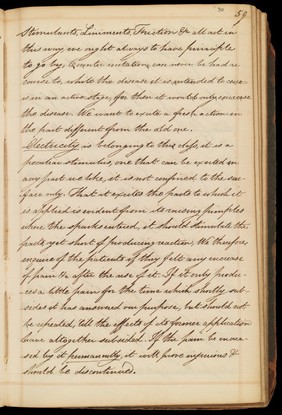 59
Stimulants, Liniments, Friction & all act in
this way, we ought always to have principle
to go by, & counter irritation can never be had re
course to, whilst the disease it is intended to cure
is in an active stage, for then it would only increase
the disease. We want to excite a fresh action in
the part different from the old one.
Electricity as belonging to this class, it is a
peculiar stimulus, one that can be exerted in
any part we like, it is not confined to the sur
face only. That it excites the parts to which it
is applied is evident from its raising pimples
where the spark entered, it should stimulate the
parts yet short of producing reaction, We therefore
enquire of the patients if they felt any increase
of pain & after the use of it. If it only produ-
ces a little pain for the time which shortly sub-
sides it has answered our purpose, but should not
be repeated, till the effects of its former application
have altogether subsided. If the pain be increa-
sed by it permanently, it will prove injurious &
should be discontinued.